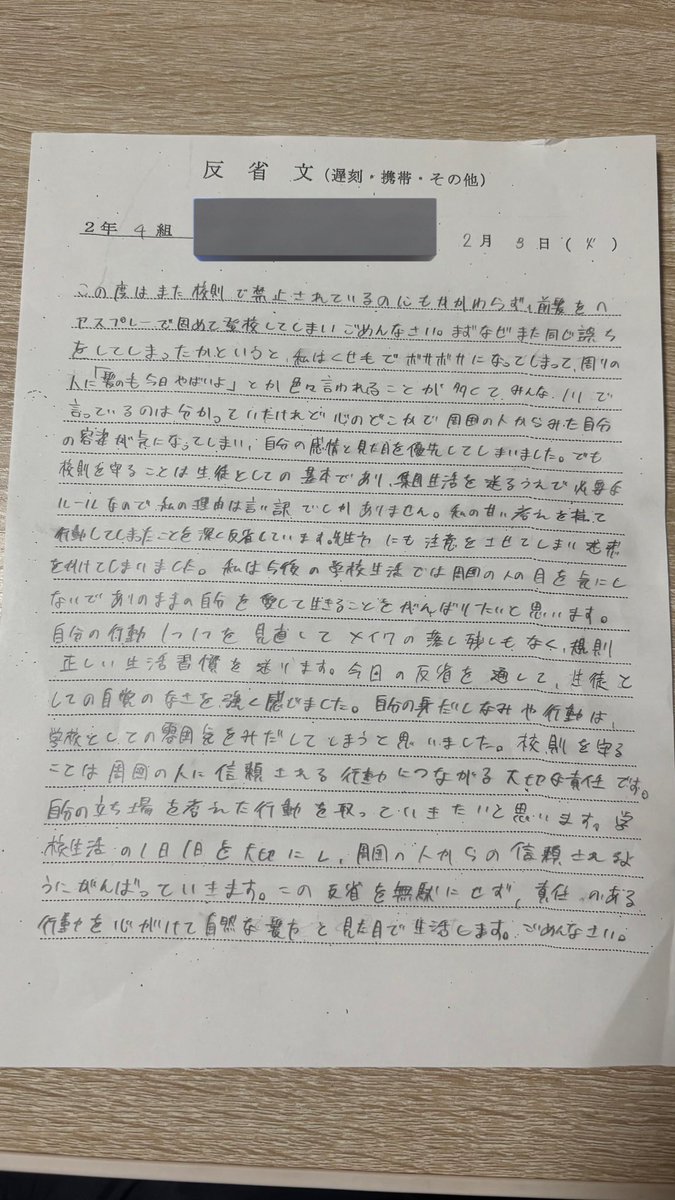 反省文(遅刻・携帯・その他)
2年 4組 2月 3日(火)
この度はまた校則で禁止されているのにもかかわらず、前髪をヘ
アスプレーで固めて登校してしまいごめんなさい。まずなぜまた同じ誤ち
をしてしまったかというと、私はくせもでボサボサになってしまって、周りの
人に「髪のも今日やばいよ」とか色々言われることが多くて、みんなノリで
言っているのは分かっていたけれど心のどこかで周囲の人からみた自分
の容姿が気になってしまい、自分の感情と見た目を優先してしまいました。でも
校則を守ることは生徒としての基本であり、集団生活を送るうえで必要な
ルールなので私の理由は言い訳でしかありません。私の甘い考えを持って
行動してしまったことを深く反省しています。先生方にも注意をさせてしまい迷惑
をかけてしまいました。私は今後の学校生活では周囲の人の目を気にし
ないでありのままの自分を愛して生きることをがんばりたいと思います。
自分の行動1つ1つを見直してメイクの落し残しもなく、規則
正しい生活習慣を送ります。今日の反省を通して、生徒と
しての自覚のなさを強く感じました。自分の身だしなみや行動は、
学校としての雰囲気をみだしてしまうと思いました。校則を守る
ことは周囲の人に信頼される行動につながる大切な責任です。
自分の立ち場を考えた行動を取っていきたいと思います。学
校生活の1日1日を大切にし、周囲の人からの信頼されるよ
うにがんばっていきます。この反省を無駄にせず、責任のある
行動を心がけて自然な髪方と見た目で生活します。ごめんなさい。